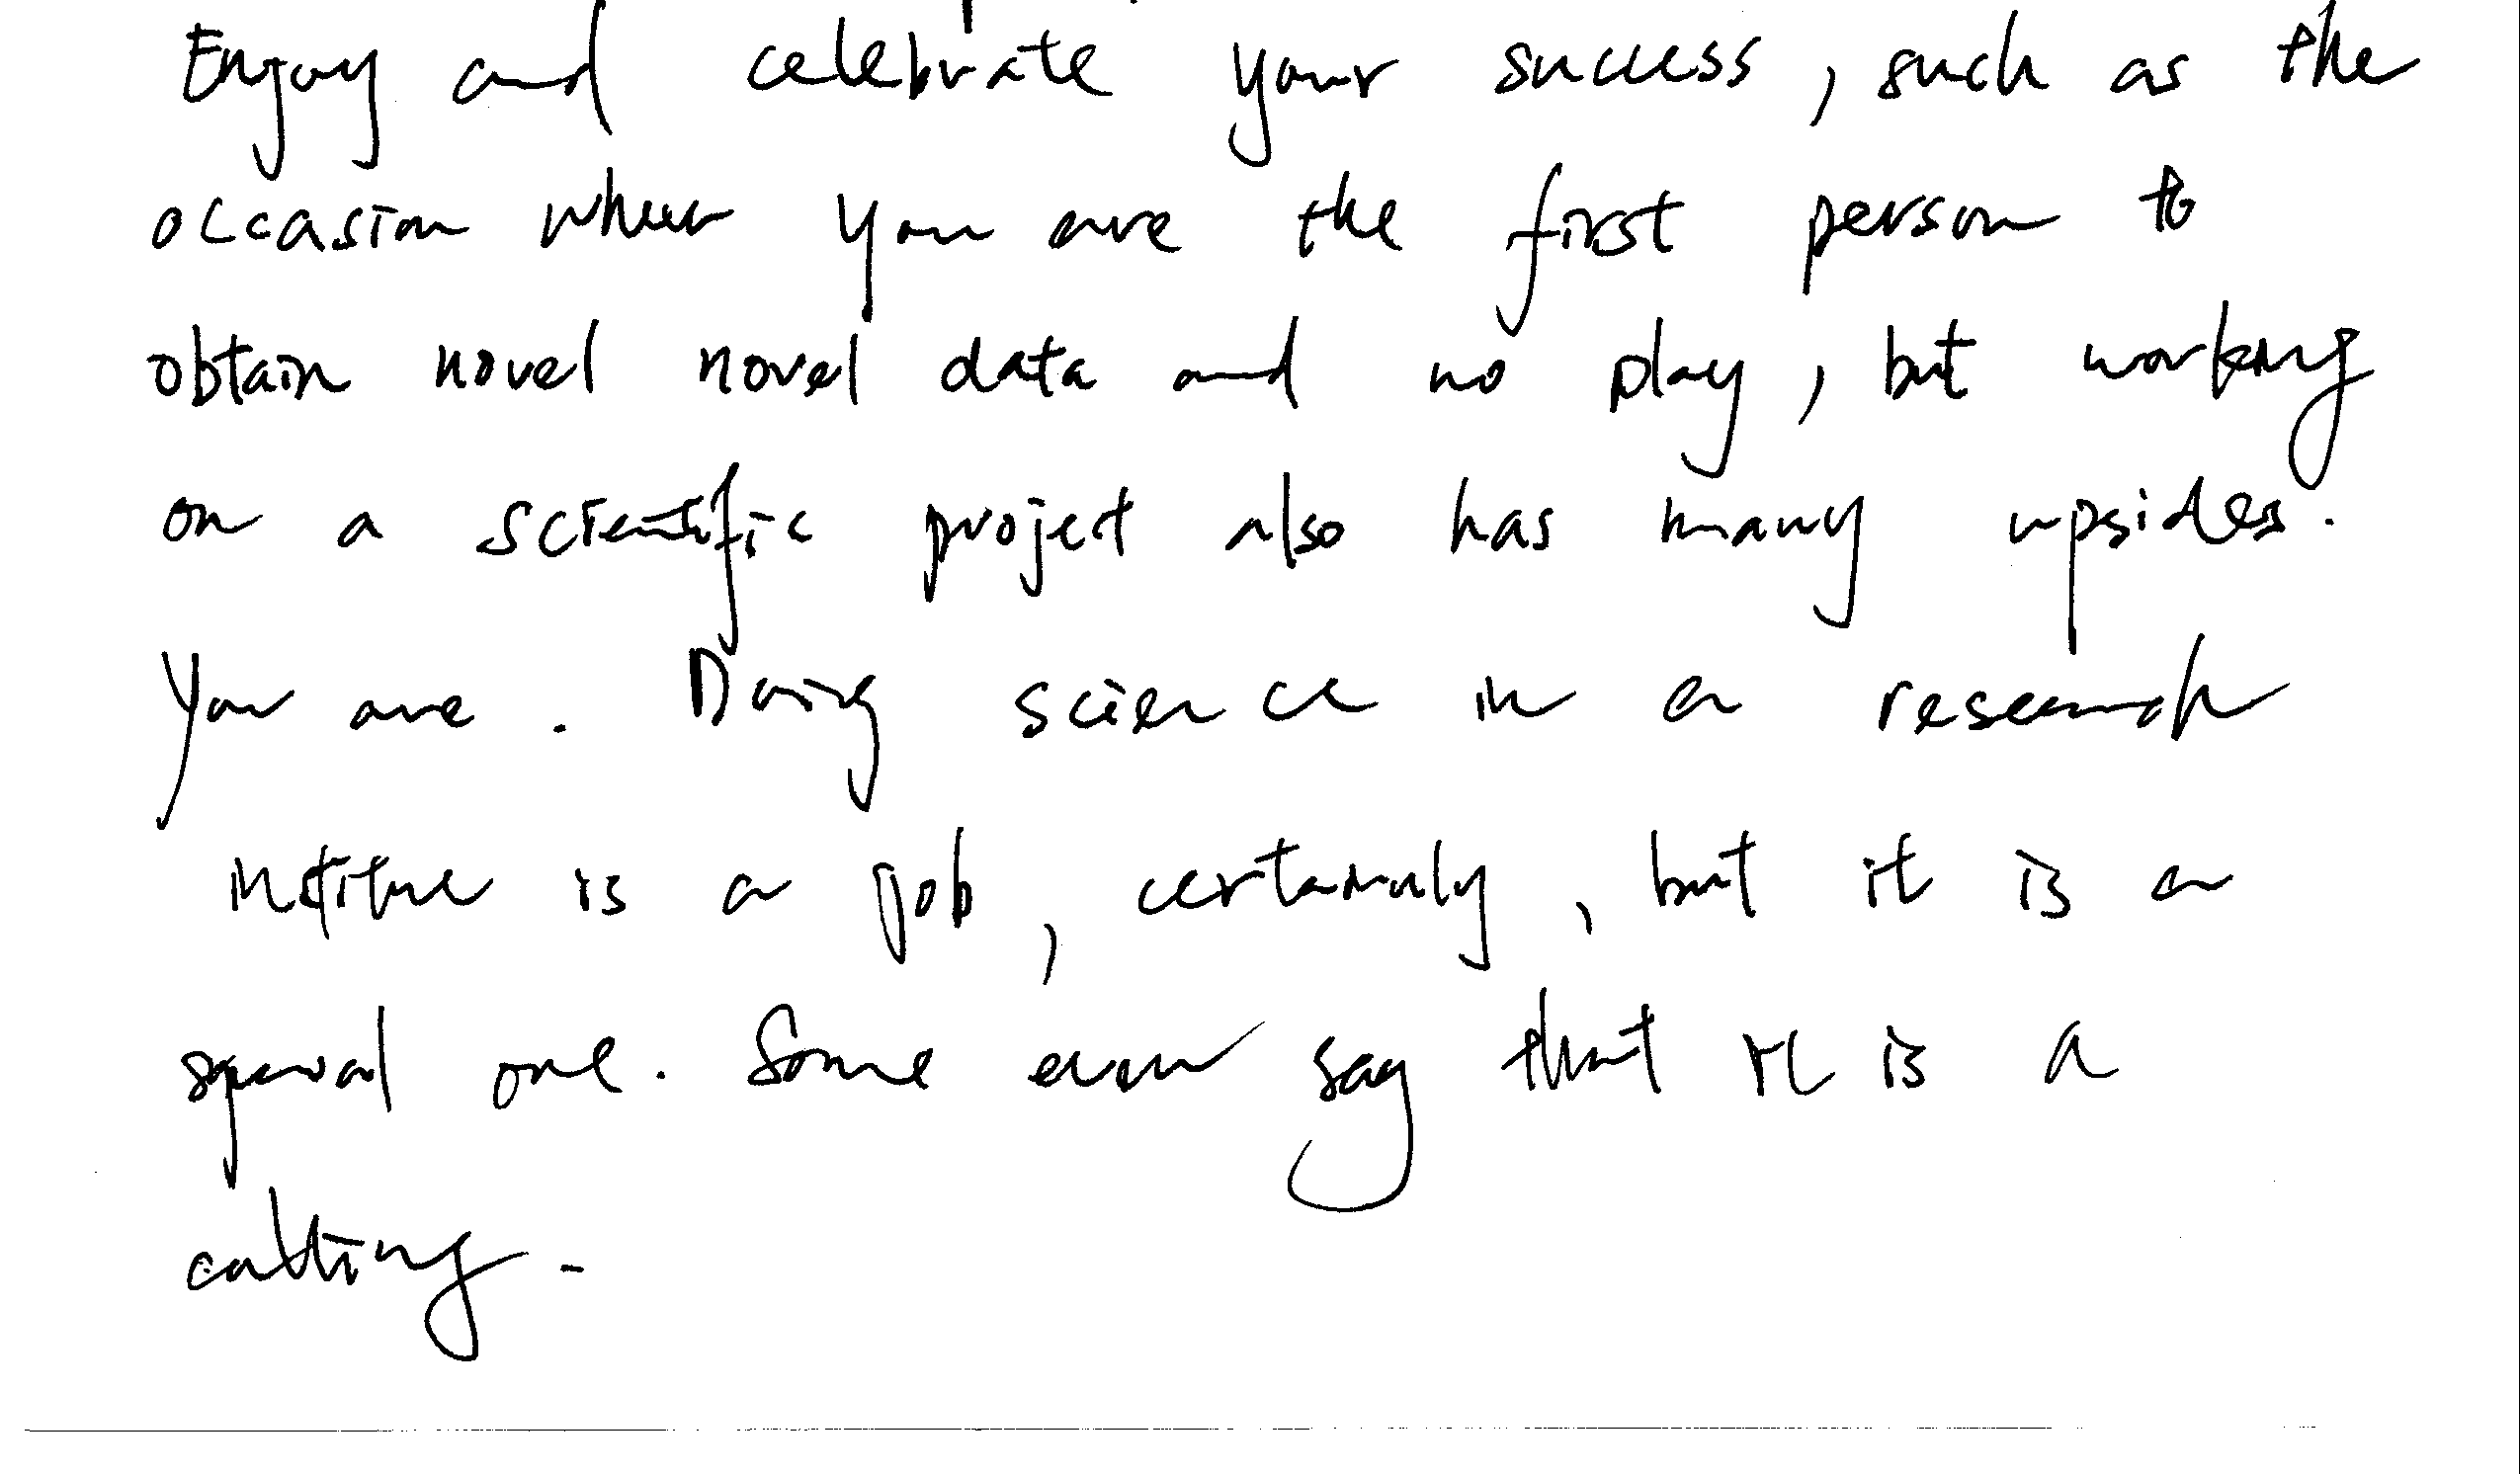 Enjoy and celebrate your success, such as the
occasion when you are the first person to
obtain novel novel data and no play, but working
on a scientific project also has many upsides.
You are. Doing science in a research
institue is a job, certainly, but it is a
special one. Some even say that it is a
calling.